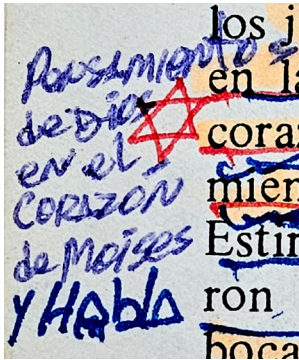 Pensamiento =
de Dios
en el
CORAZÓN
de Moises
y Habla
los j
en la
coraz
mien
Estin
ron
boca